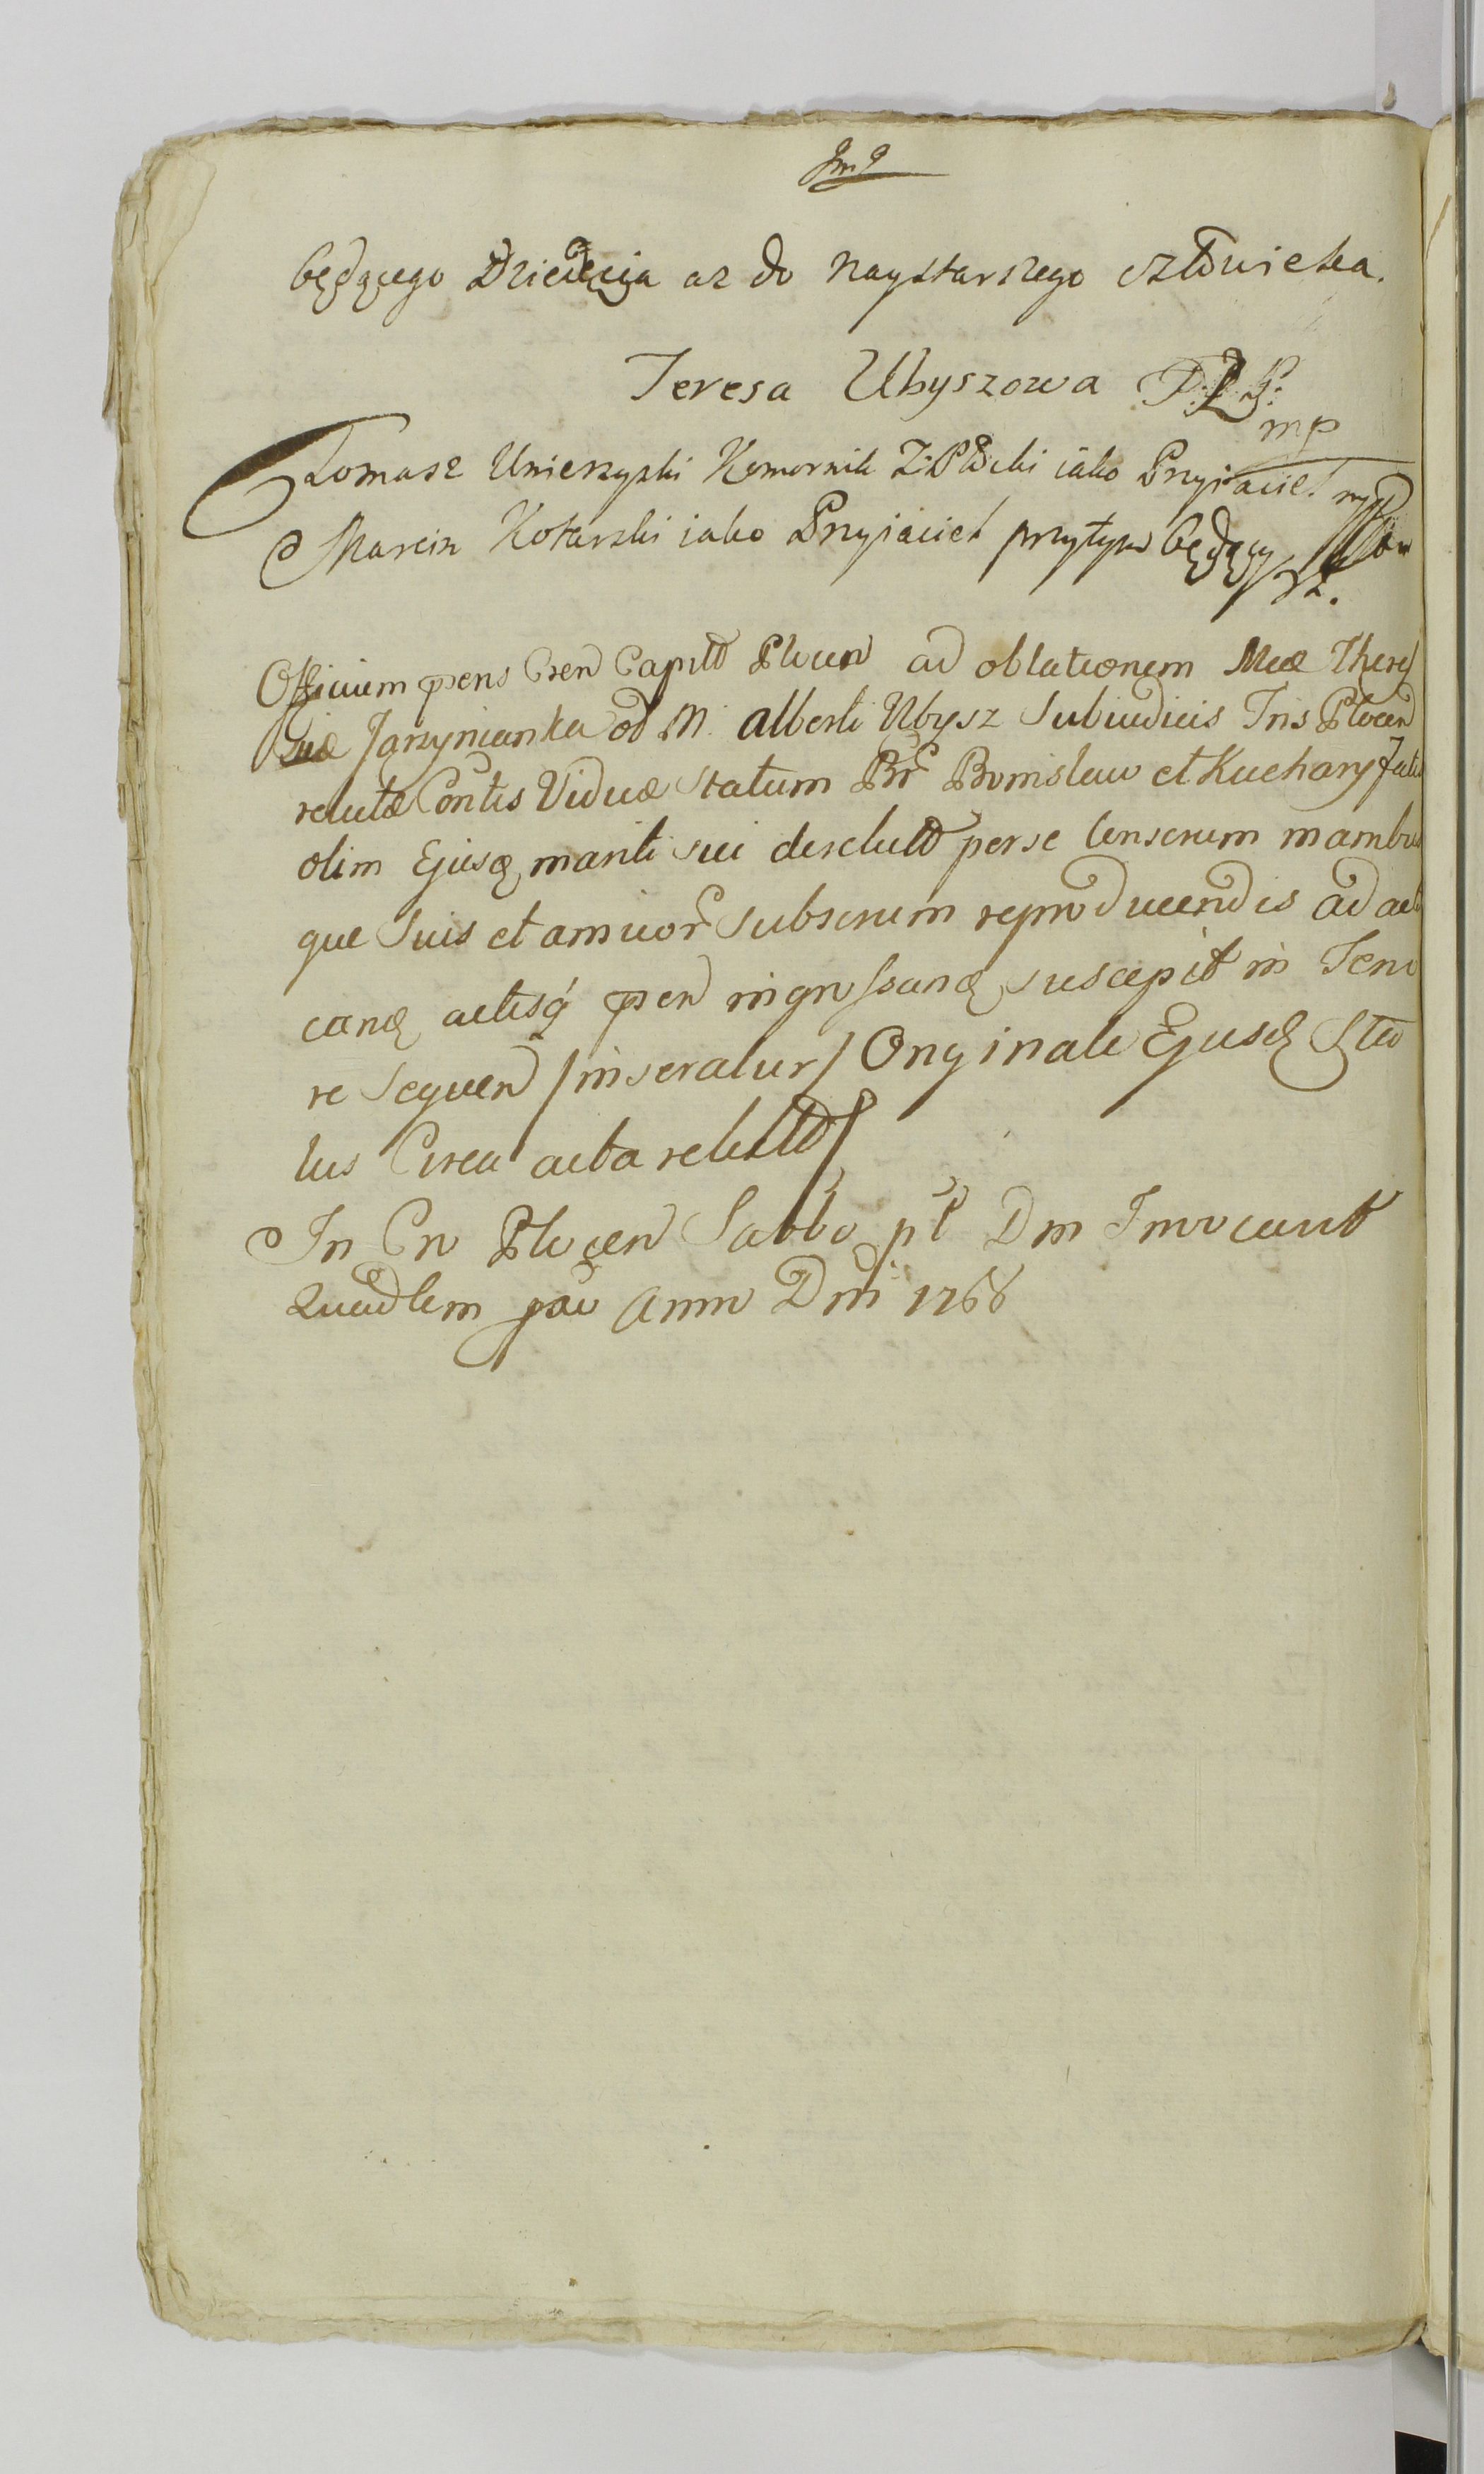 będącego Dziecięcia az do naystarszego człowieka.
Teresa Ubyszowa P: Z: P:
mp
Tomasz Unierzyski Komornik Z: Płocki iako Przyiaciel mp
Marcin Kotarski iako Przyjaciel przytym będący
Officium pens Cren Capitl Plocen ad oblationem Mcæ There
siæ Jarzynianka od M. Alberti Ubysz Subiudicis Tris Plocen
relictæ Contis Viduæ Statum Br Bromislaw et Kuchary
olim Ejusq mariti sui derelictt per se conscrum manibus
que suis et amicor subscrum reproducendis ad acti
cand actisq pen ingrossand suscepit in Teno
re sequen /inseratur/ Originale Ejusd Sta
tus Circa acta relictt
In Cro Plocen Sabbo pt Dm Invocavit
Quadlem pxio Anno Dni 1768